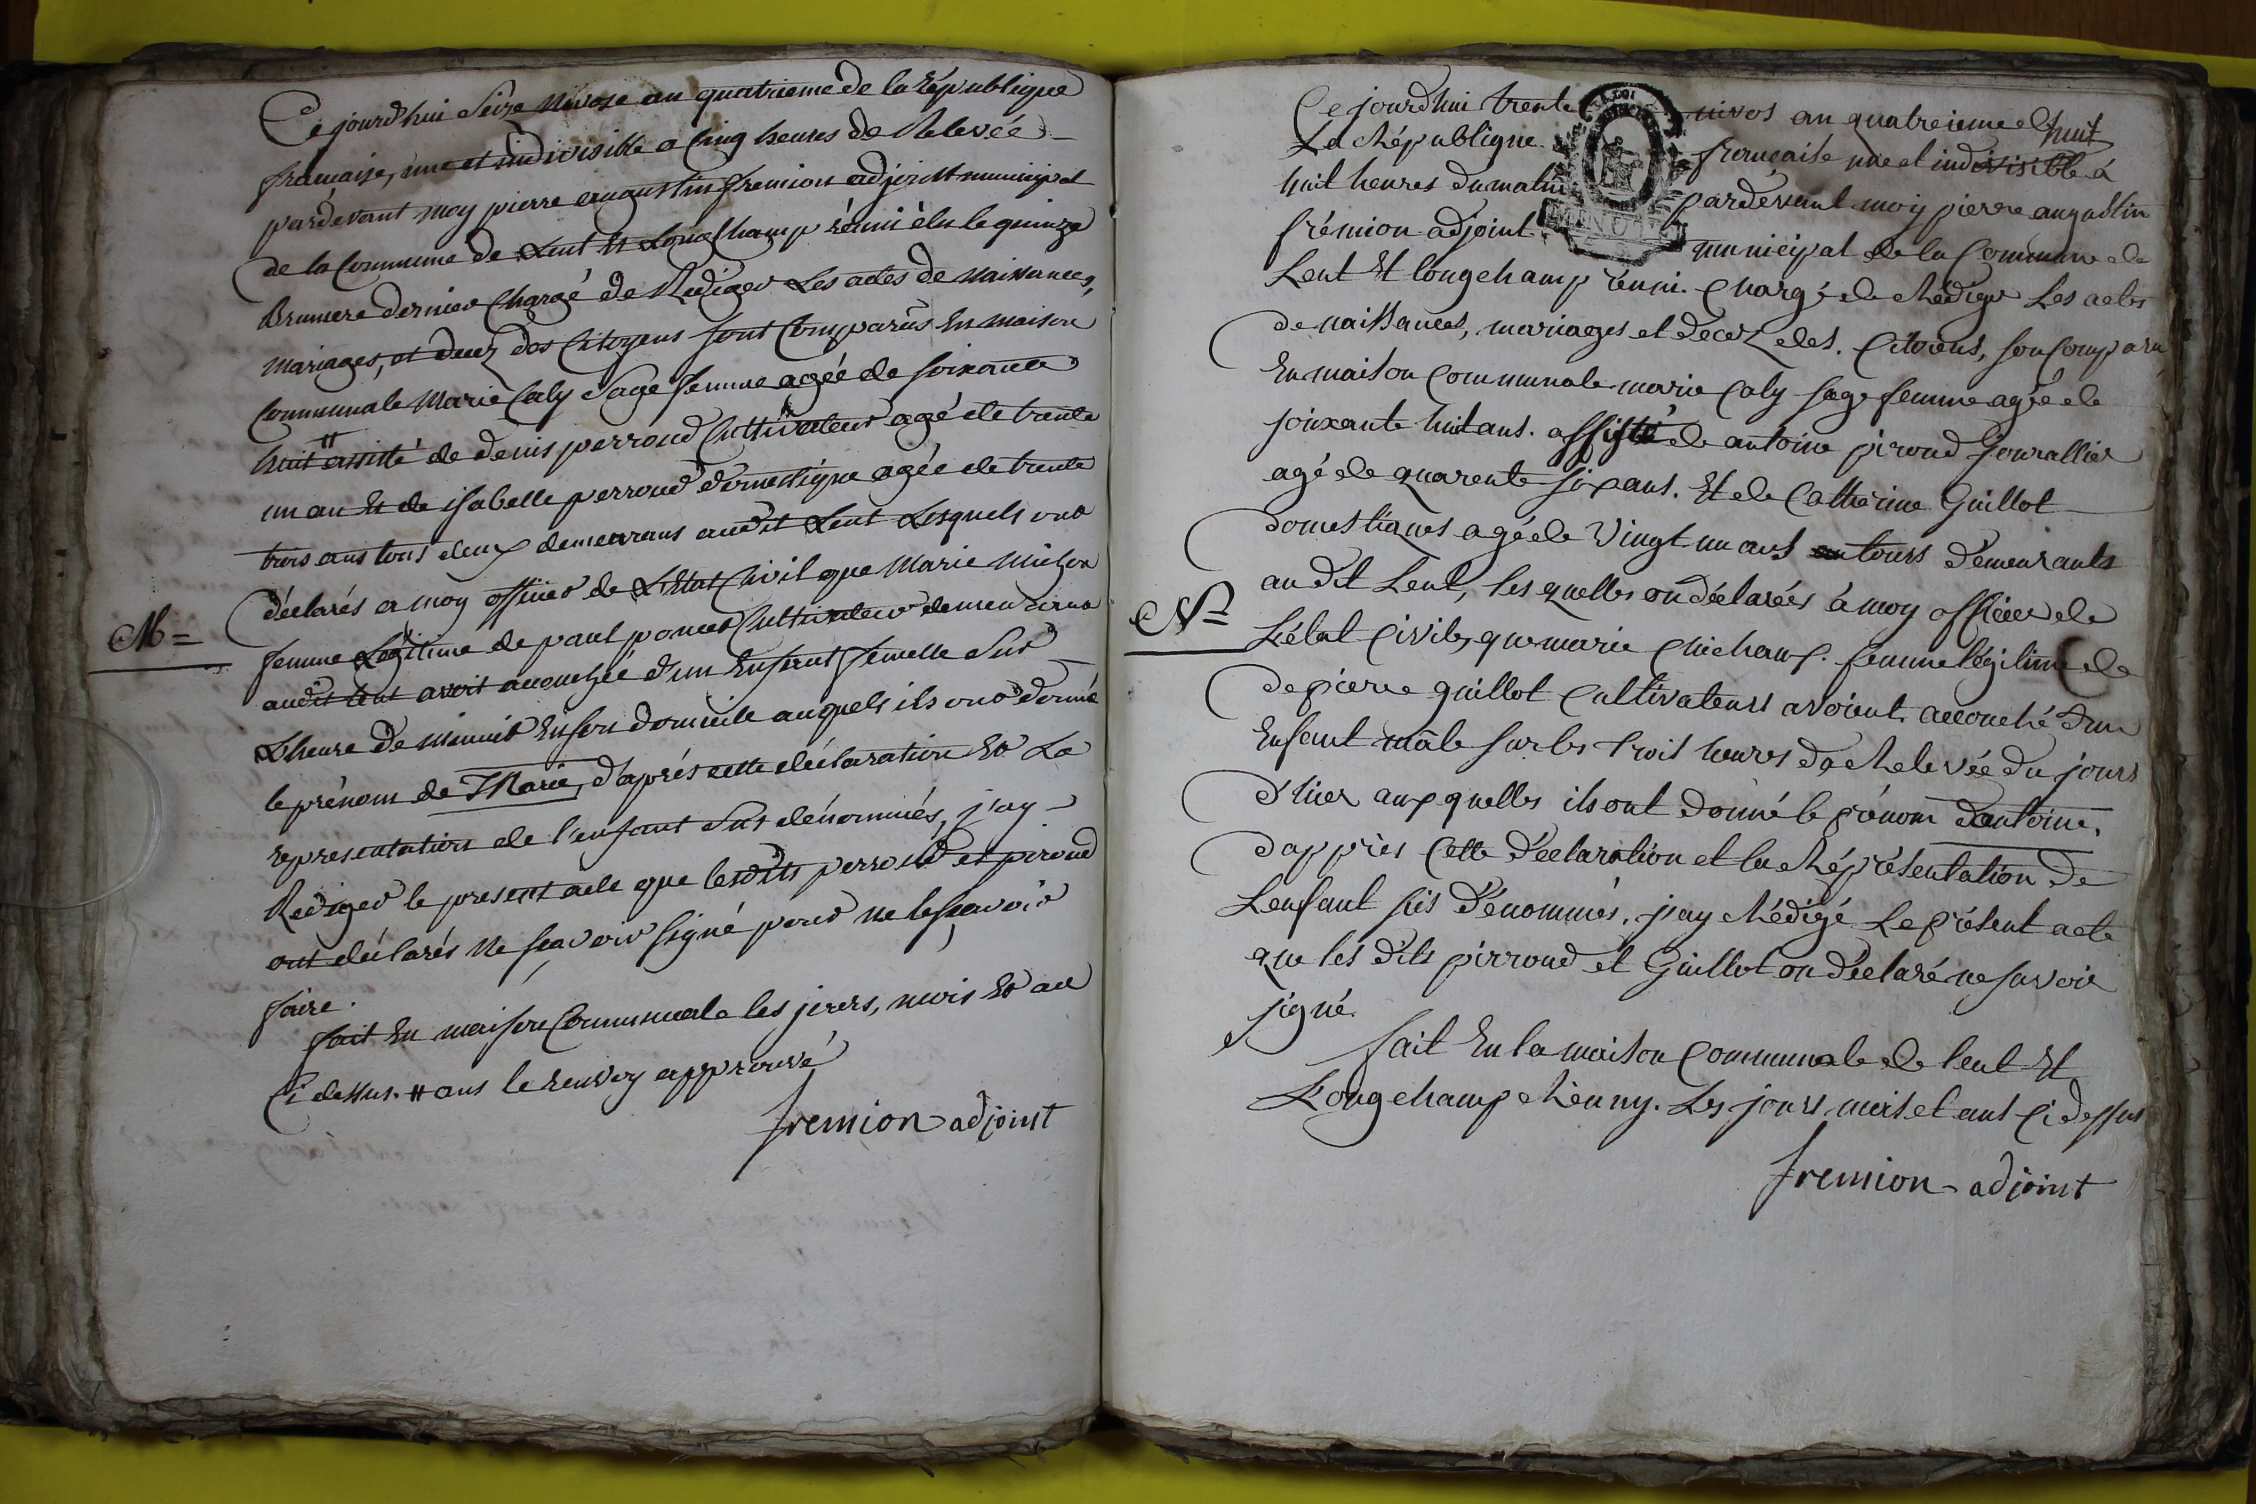 Ce jourd'hui Seize Nivose an quatrieme de la république
francaise, une et indivisible a Cinq heures de Relevée
pardevant moy pierre auaustin fremion adjoint municipal
de la Commune de Lent Et Longchamp réuni élu le quinze
Brumere dernier Chargé de Rediger Les actes de naissances,
mariages, et decez des Citoyens sont Comparüs En maison
Communale Marie Caly Sage femme agée de soixante
huit # assisté de denis perroud Cultivateur agé de trente
un an Et de isabelle perroud domestique agée de trente
trois ans tous deux demeurans audit Lent Lesquels ont
déclarés a moy officier de L'Etat Civil que Marie Michon
femme Légitime de paul poncet Cultivateur demeurant
audit lent avoit accouchée d'un Enfant femelle Sur
L'heure de minuit En son domicile auquels ils ont donné
le prénom de Marie, d'aprés cette déclaration Et La
representation de l'enfant Sus dénommés, j'ay
Rediger le present acte que lesdits perroud et peroud
ont déclarés ne scavoir signé pour ne le scavoir
faire.
fait En maison Communale les jours, mois Et an
Ci dessus. # ans le renvoy approuvé
fremion adjoint
M=
Ce jourd'hui trente nivos an quatreieme de huit
La République française une et indivisible à
huit heures du matin pardevant moy pierre augustin
frémion adjoint municipal de la Commune de
MINUTE
Lent Et longchamp réuni. Chargé de Rédiger Les actes
de naissances, mariages et decez des. Citoiens, son Comparu
En maison Communale marie Caly sage femme agée de
soixante huit ans. assisté de antoine piroud Jourallier
agé de quarente six ans. Et de Catherine Guillot
domestiques agé de Vingt un ans tours demeurants
au dit Lent, les quelles on déclarées à moy officier de
L'état Civile, que marie Chichoux. femme légitime de
de pierre guillot Cultivateurs avoient accouché d'un
Enfant mâle sur les trois heures de Relevée du jours
d'hier aux quelles ils ont donné le prénom d'antoine,
d'apprès Cette déclaration et la Réprésentation de
Lenfant sus dénommés, j'ay Rédigé Le présent acte
que les dits pirroud et Guillot on déclaré ne savoir
signé.
fait En la maison Communale de lent Et
Longchamp Réuny. Les jours mois et ans Ci dessus
fremion adjoint
N=